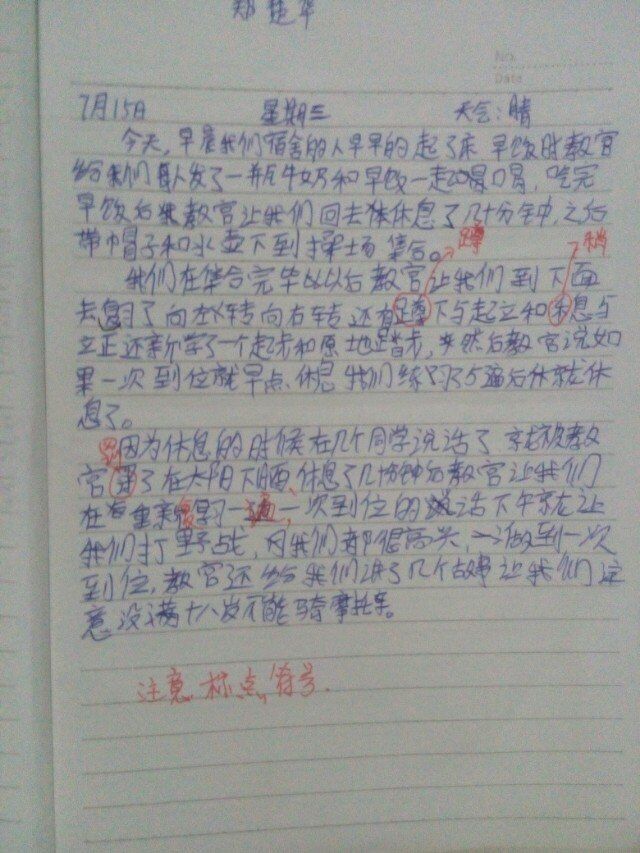 郑楚华
No.
Date
7月15日 星期三 天气:晴
今天,早晨我们宿舍的人早早的起了床 早饭时教官
给我们每人发了一瓶牛奶和早饭一起喝,吃完
早饭后教官让我们回去休息了几十分钟,之后
带帽子和水壶下到操场集合。
蹲 稍
我们在集合完毕以后教官让我们到下面
去复习了向左转向右转还有蹲下与起立和息与
立正还新学了一个起步和原地踏步,然后教官说如
果一次到位就早点休息 我们练习了5遍后休就休
息了。
因为休息的时候在几个同学说话了 就被教
官 了在太阳下晒、休息了几十分钟后教官让我们
在重新复习一遍,一次到位的话下午就让
我们打野战,我们都很高兴,一做到一次
到位,教官还给我们讲了几个故事让我们注
意没满十八岁不能骑摩托车。
注意标点符号.